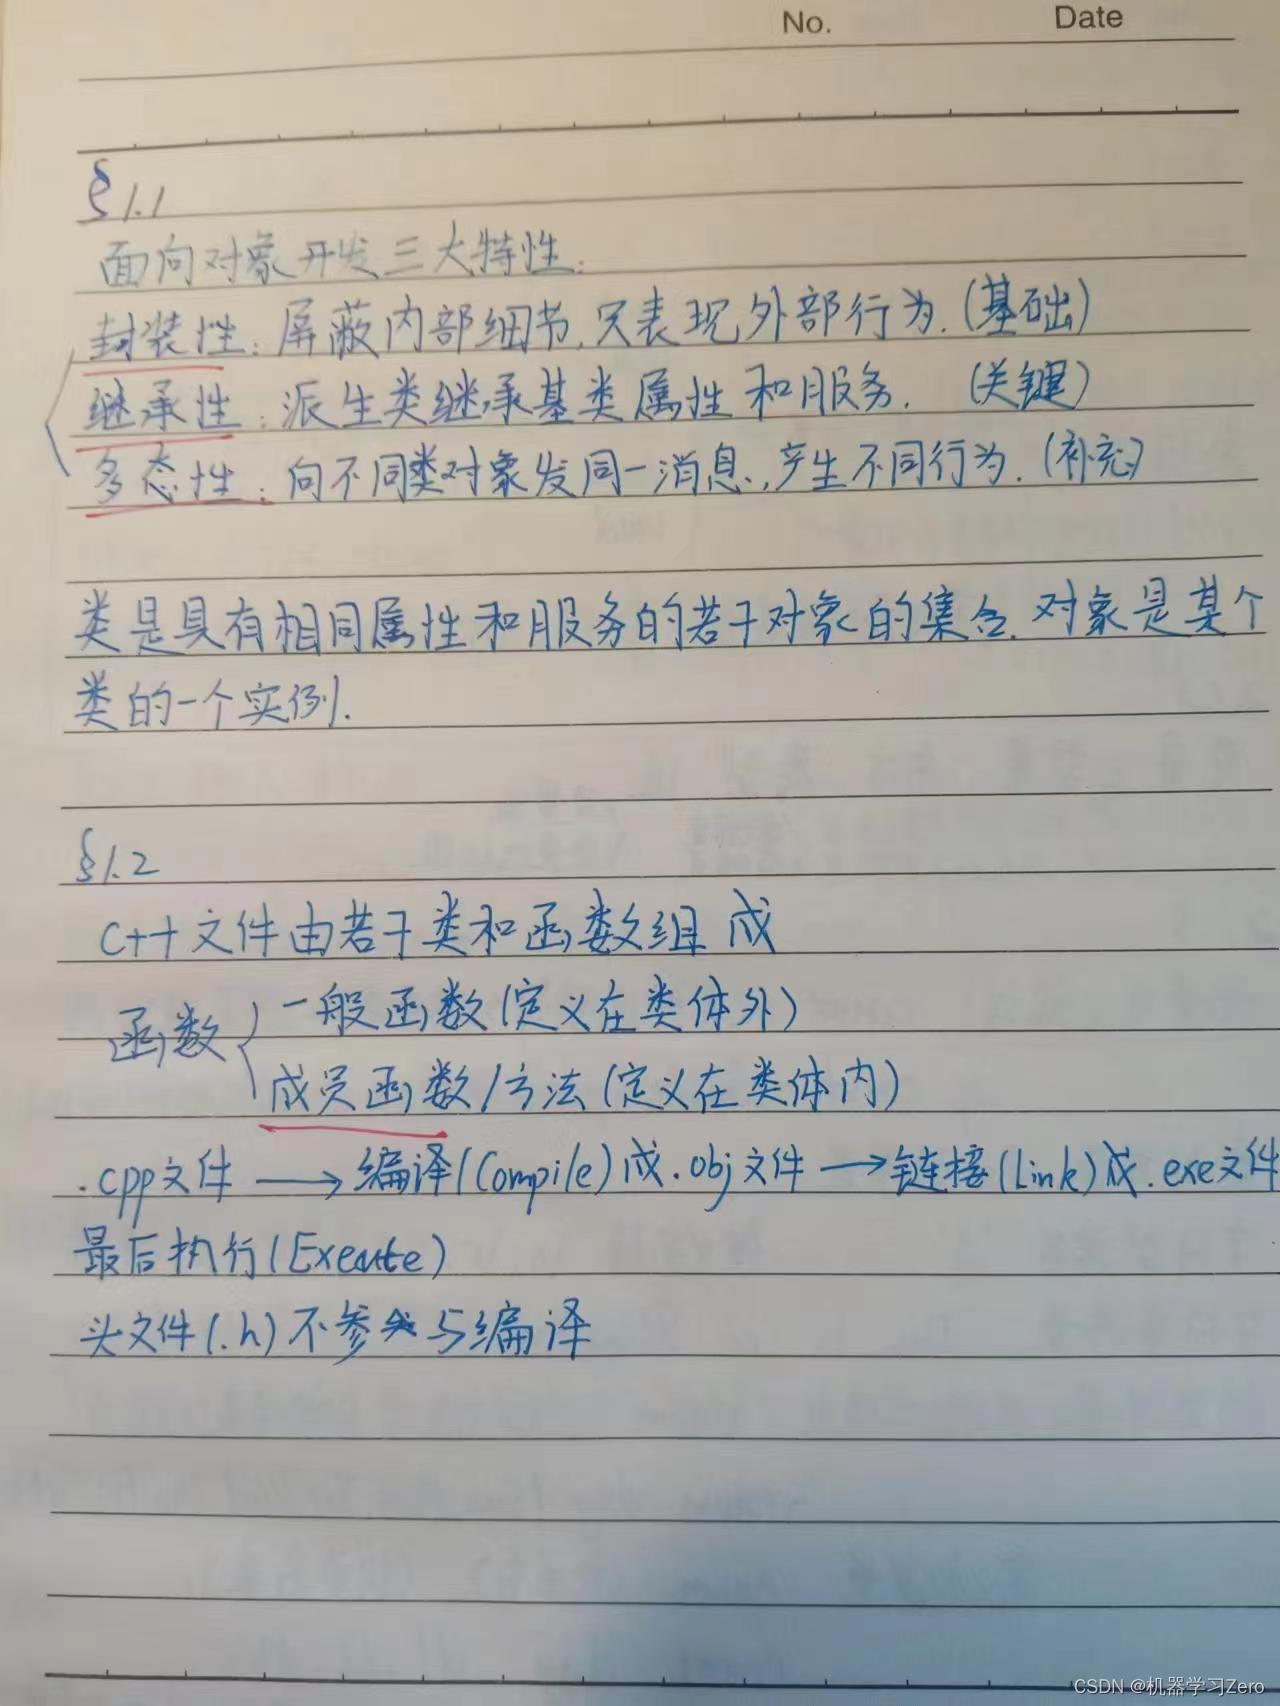 No. Date
§1.1
面向对象开发三大特性:
封装性:屏蔽内部细节,只表现外部行为.(基础)
继承性:派生类继承基类属性和服务. (关键)
多态性:向不同类对象发同一消息,产生不同行为.(补充)
类是具有相同属性和服务的若干对象的集合.对象是某个
类的一个实例.
§1.2
C++文件由若干类和函数组成
函数 一般函数(定义在类体外)
成员函数/方法(定义在类体内)
.cpp文件 → 编译(Compile)成.obj文件 → 链接(Link)成.exe文件
最后执行(Exeute)
头文件(.h)不参与编译
CSDN @机器学习Zero